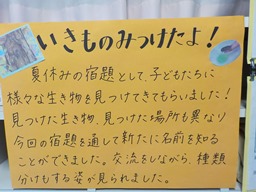 いきものみつけたよ！
夏休みの宿題として、子どもたちに
様々な生き物を見つけてきてもらいました！
見つけた生き物、見つけた場所も異なり
今回の宿題を通して新たに名前を知る
ことができました。交流をしながら、種類
分けもする姿が見られました。